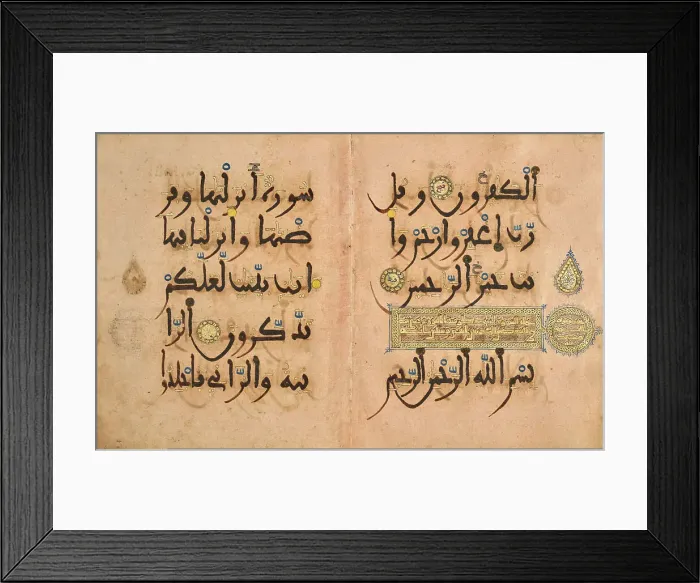 ٱلْكَٰفِرُونَ وَقُل
رَّبِّ ٱغْفِرْ وَٱرْحَمْ وَأَ
نتَ خَيْرُ ٱلرَّٰحِمِينَ
بِسْمِ ٱللَّهِ ٱلرَّحْمَٰنِ ٱلرَّحِيمِ
سُورَةٌ أَنزَلْنَٰهَا وَفَرَ
ضْنَٰهَا وَأَنزَلْنَا فِيهَا
ءَايَٰتٍۭ بَيِّنَٰتٍ لَّعَلَّكُمْ
تَذَّكَّرُونَ ٱلزَّا
نِيَةُ وَٱلزَّانِي فَٱجْلِدُوا